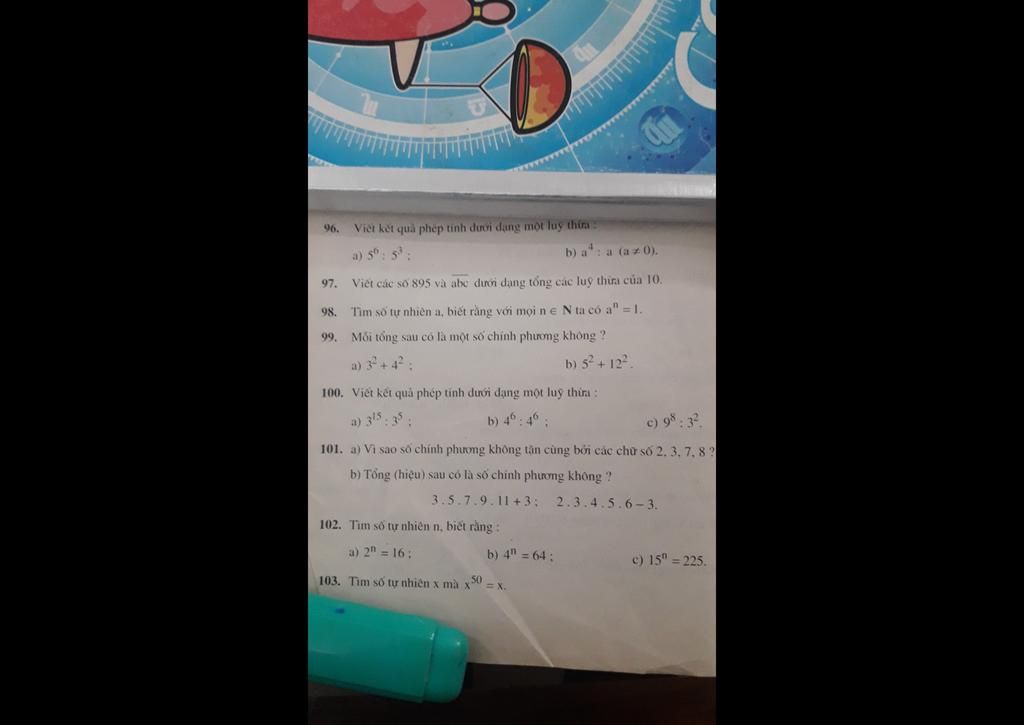 96. Viết kết quả phép tính dưới dạng một luỹ thừa :
a) 5⁶ : 5³ ; b) a⁴ : a (a ≠ 0).
97. Viết các số 895 và a̅b̅c̅ dưới dạng tổng các luỹ thừa của 10.
98. Tìm số tự nhiên a, biết rằng với mọi n ∈ N ta có aⁿ = 1.
99. Mỗi tổng sau có là một số chính phương không ?
a) 3² + 4² ; b) 5² + 12².
100. Viết kết quả phép tính dưới dạng một luỹ thừa :
a) 3¹⁵ : 3⁵ ; b) 4⁶ : 4⁶ ; c) 9⁸ : 3².
101. a) Vì sao số chính phương không tận cùng bởi các chữ số 2, 3, 7, 8 ?
b) Tổng (hiệu) sau có là số chính phương không ?
3 . 5 . 7 . 9 . 11 + 3 ; 2 . 3 . 4 . 5 . 6 – 3.
102. Tìm số tự nhiên n, biết rằng :
a) 2ⁿ = 16 ; b) 4ⁿ = 64 ; c) 15ⁿ = 225.
103. Tìm số tự nhiên x mà x⁵⁰ = x.